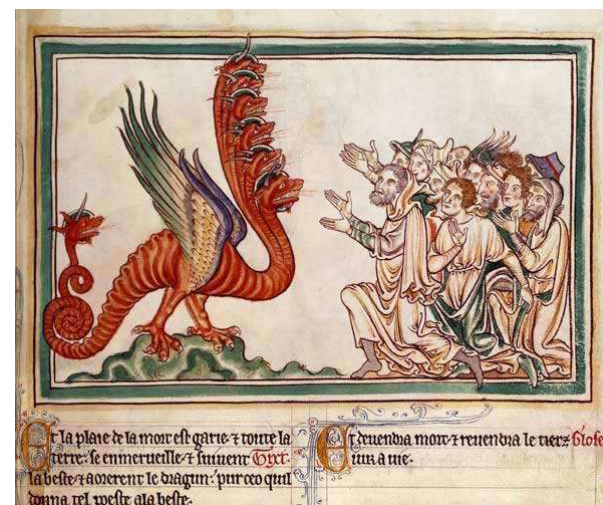 Et la plaie de la mort est garie ⁊ toute la
terre se enmerueille ⁊ siuuent Tixt.
la beste ⁊ aorerent le dragun· pur ceo quil
donna tel poeste a la beste·
Et deuendra mort ⁊ reuendra le tierz Glose
iur a vie·